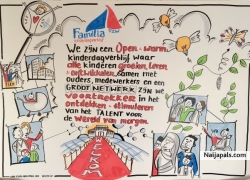 Familia
kinderdagverblijf vzw
We zijn een Open & warm
kinderdagverblijf waar
alle kinderen groeien, leren
& ontwikkelen. Samen met
ouders, medewerkers en een
GROOT NETWERK zijn we
VOORTREKKER in het
ontdekken & stimuleren
van het TALENT voor
de Wereld van morgen.
WELKOM
Naijapals.com